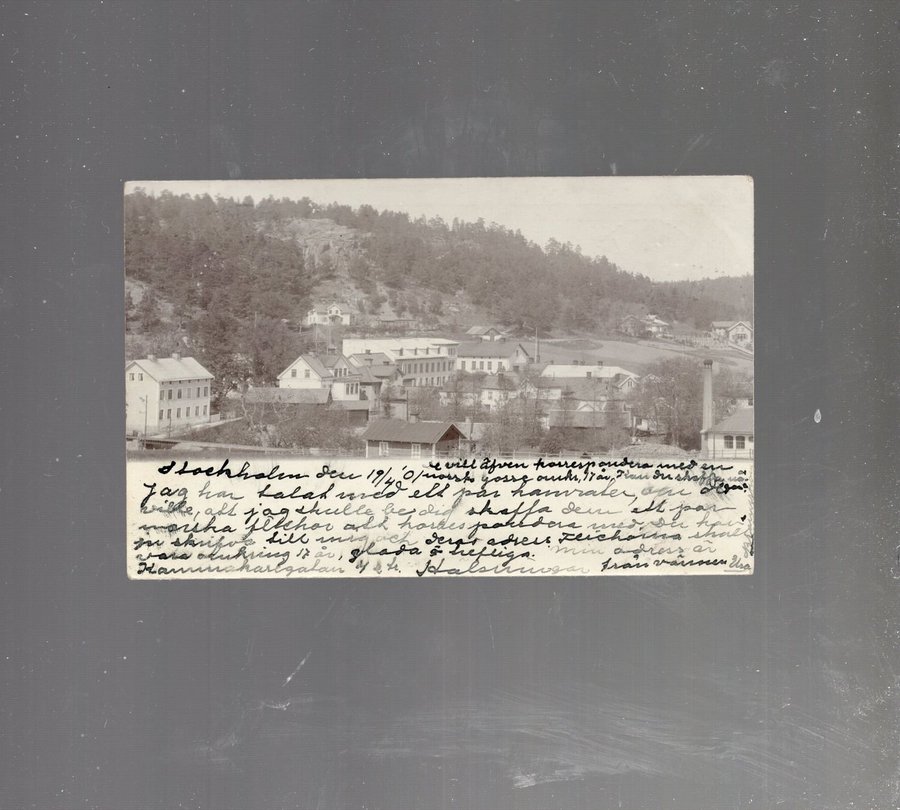 Stockholm den 19/4 01 vill äfven korrespondera med en
norsk gosse omkr. 17 år, kan du skaffa
Jag har talat med ett par kamrater, om de
ville, att jag skulle be dig skaffa dem ett par
norska flickor att korrespondera med. Du har
ju skrifva till mig och deras adress. Flickorna skall
vara omkring 17 år, glada &amp; heftiga. Min adress är
4 Helsningar från vännen